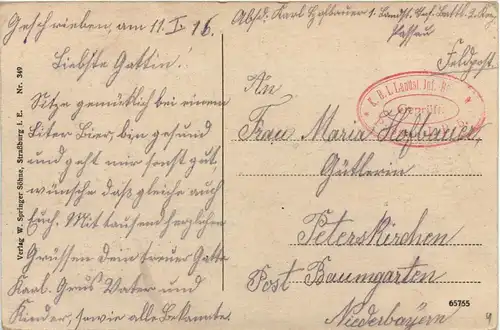 Geschrieben, am 11. I. 16.
Absd. Karl Hofbauer 1. Landst. Inf. Batl. 2. Kom.
Passau
Feldpost.
Liebste Gattin!
Sitze gemütlich bei einem
Liter Bier, bin gesund
und geht mir sonst gut
wünsche daß gleiche auch
Euch. Mit tausend herzlichen
Grüssen dein treuer Gatte
Karl. Grus Vater und
Kinder, sowie alle Bekannte.
An
Frau Maria Hofbauer,
Gütlerin
Peterskirchen
Post Baumgarten
Niederbayern
K. B. I. Landst. Inf.
Geprüft
Verlag W. Springer Söhne, Straßburg i. E. Nr. 349
65765